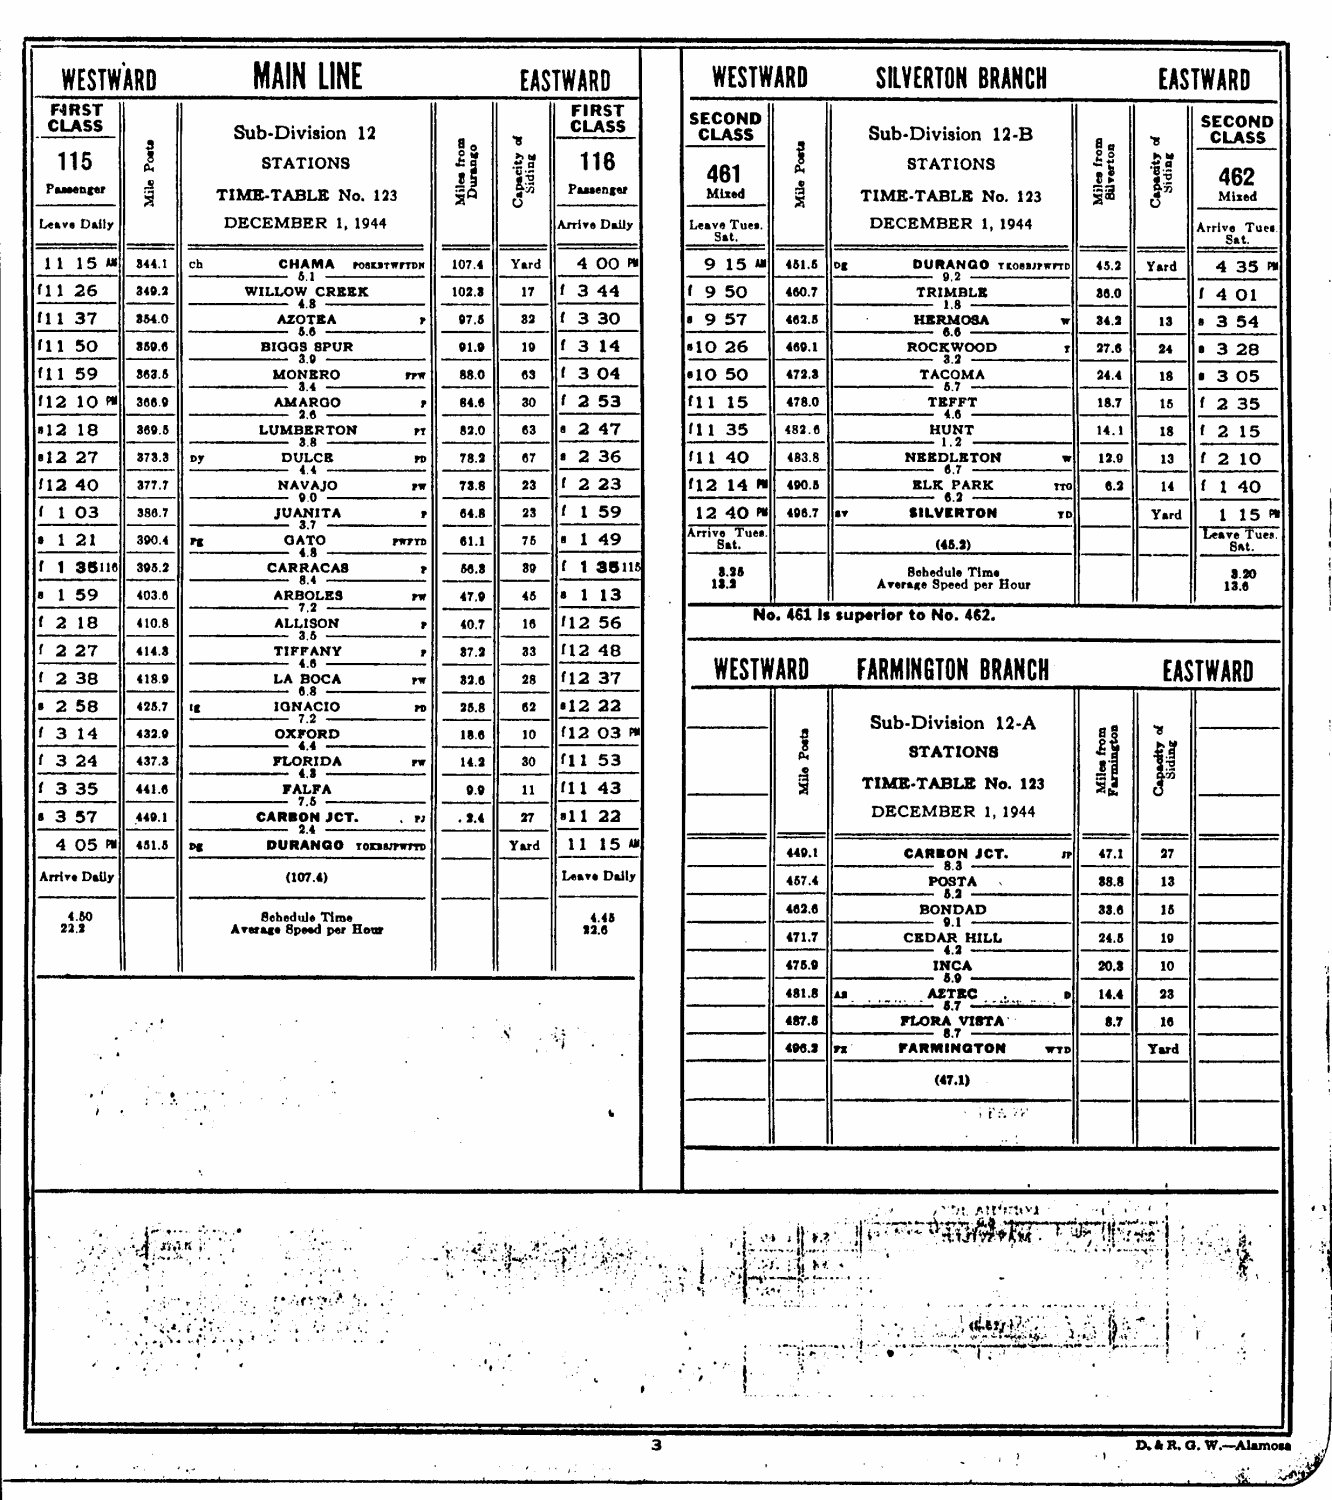 WESTWARD MAIN LINE EASTWARD
FIRST CLASS FIRST CLASS
Sub-Division 12
115 Mile Posts STATIONS Miles from Durango Capacity of Siding 116
Passenger TIME-TABLE No. 123 Passenger
Leave Daily DECEMBER 1, 1944 Arrive Daily
11 15 AM 344.1 ch CHAMA 107.4 Yard 4 00 PM
5.1
f11 26 349.2 WILLOW CREEK 102.3 17 f 3 44
4.8
f11 37 354.0 AZOTEA P 97.5 32 f 3 30
5.6
f11 50 359.6 BIGGS SPUR 91.9 19 f 3 14
3.9
f11 59 363.5 MONERO 88.0 63 f 3 04
3.4
f12 10 PM 366.9 AMARGO P 84.6 30 f 2 53
2.6
s12 18 369.5 LUMBERTON PY 82.0 63 s 2 47
3.8
s12 27 373.3 Dy DULCE PD 78.2 67 s 2 36
4.4
f12 40 377.7 NAVAJO PW 73.8 23 f 2 23
9.0
f 1 03 386.7 JUANITA P 64.8 23 f 1 59
3.7
s 1 21 390.4 Pg GATO PWFYD 61.1 75 s 1 49
4.8
f 1 35 116 395.2 CARRACAS P 56.3 39 f 1 35 115
8.4
s 1 59 403.6 ARBOLES PW 47.9 45 s 1 13
7.2
f 2 18 410.8 ALLISON P 40.7 16 f12 56
3.5
f 2 27 414.3 TIFFANY P 37.2 33 f12 48
4.6
f 2 38 418.9 LA BOCA PW 32.6 28 f12 37
6.8
s 2 58 425.7 ig IGNACIO PD 25.8 62 s12 22
7.2
f 3 14 432.9 OXFORD 18.6 10 f12 03 PM
4.4
f 3 24 437.3 FLORIDA PW 14.2 30 f11 53
4.3
f 3 35 441.6 FALFA 9.9 11 f11 43
7.5
s 3 57 449.1 CARBON JCT. PJ 2.4 27 s11 22
2.4
4 05 PM 451.5 Dg DURANGO Yard 11 15 AM
Arrive Daily (107.4) Leave Daily
4.50 Schedule Time 4.45
22.2 Average Speed per Hour 22.6
WESTWARD SILVERTON BRANCH EASTWARD
SECOND CLASS SECOND CLASS
Sub-Division 12-B
461 Mile Posts STATIONS Miles from Silverton Capacity of Siding 462
Mixed TIME-TABLE No. 123 Mixed
Leave Tues. Sat. DECEMBER 1, 1944 Arrive Tues. Sat.
9 15 AM 451.5 Dg DURANGO 45.2 Yard 4 35 PM
9.2
f 9 50 460.7 TRIMBLE 36.0 f 4 01
1.8
s 9 57 462.5 HERMOSA W 34.2 13 s 3 54
6.6
s10 26 469.1 ROCKWOOD Y 27.6 24 s 3 28
3.2
s10 50 472.3 TACOMA 24.4 18 s 3 05
5.7
f11 15 478.0 TEFFT 18.7 15 f 2 35
4.6
f11 35 482.6 HUNT 14.1 18 f 2 15
1.2
f11 40 483.8 NEEDLETON W 12.9 13 f 2 10
6.7
f12 14 PM 490.5 ELK PARK 6.2 14 f 1 40
6.2
12 40 PM 496.7 sv SILVERTON YD Yard 1 15 PM
Arrive Tues. Sat. (45.2) Leave Tues. Sat.
3.25 Schedule Time 3.20
13.2 Average Speed per Hour 13.6
No. 461 is superior to No. 462.
WESTWARD FARMINGTON BRANCH EASTWARD
Sub-Division 12-A
Mile Posts STATIONS Miles from Farmington Capacity of Siding
TIME-TABLE No. 123
DECEMBER 1, 1944
449.1 CARBON JCT. JP 47.1 27
8.3
457.4 POSTA 38.8 13
5.2
462.6 BONDAD 33.6 15
9.1
471.7 CEDAR HILL 24.5 19
4.2
475.9 INCA 20.3 10
5.9
481.8 AZTEC D 14.4 23
5.7
487.5 FLORA VISTA 8.7 16
8.7
496.2 FARMINGTON WYD Yard
(47.1)
3
D. & R. G. W.—Alamosa